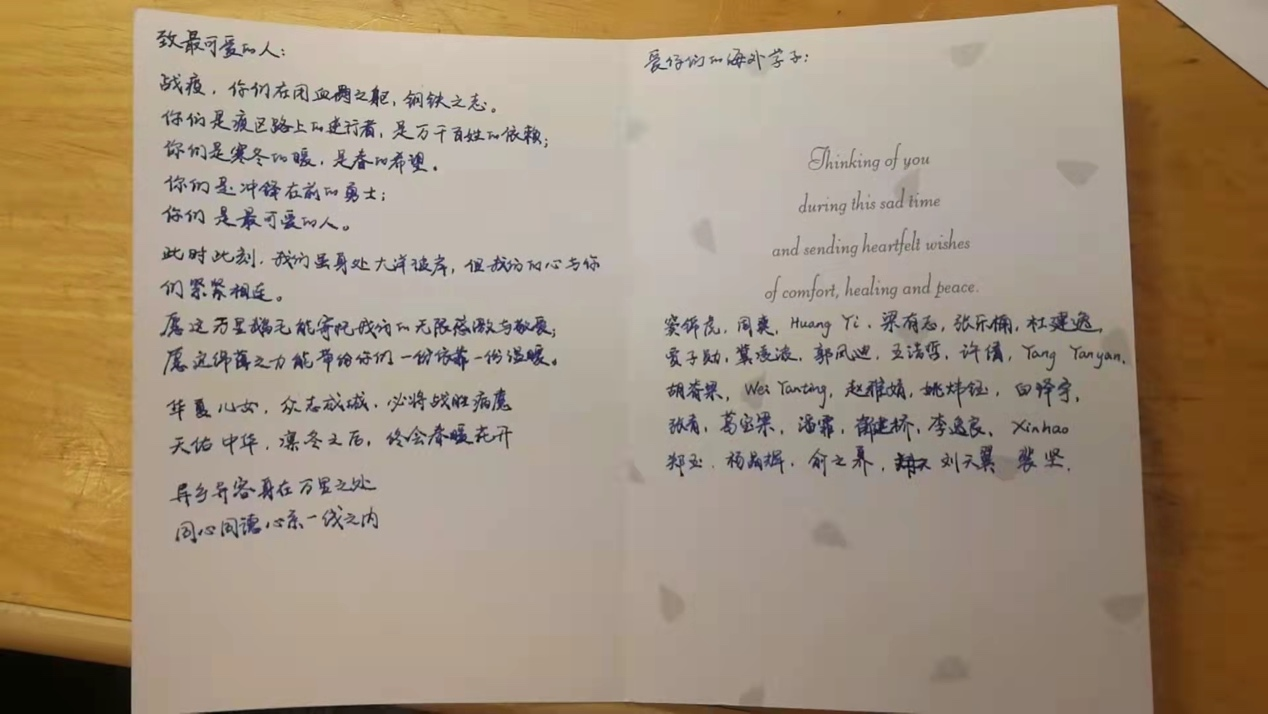 致最可爱的人：
战疫，你们在用血肉之躯，钢铁之志。
你们是疫区路上的逆行者，是万千百姓的依赖；
你们是寒冬的暖，是春的希望。
你们是冲锋在前的勇士；
你们是最可爱的人。
此时此刻，我们虽身处大洋彼岸，但我们的心与你
们紧紧相连。
愿这万里鸿毛能寄托我们的无限感激与敬爱；
愿这绵薄之力能带给你们一份依靠一份温暖。
华夏儿女，众志成城，必将战胜病魔
天佑中华，凛冬之后，终会春暖花开
异乡异客身在万里之处
同心同德心系一线之内
爱你们的海外学子：
Thinking of you
during this sad time
and sending heartfelt wishes
of comfort, healing and peace.
周爽，Huang Yi、梁有志，张乐倩，杜建逸，
郭风迪，王浩哲，许倩，Yang Yanyan，
Wei Yanting，赵雅娟，姚炜钰，田铎宇，
张育，葛宝梁，潘霏，李逸良，Xinhao
郑玉，杨晶辉，俞之昇，刘天翼 裴坚.